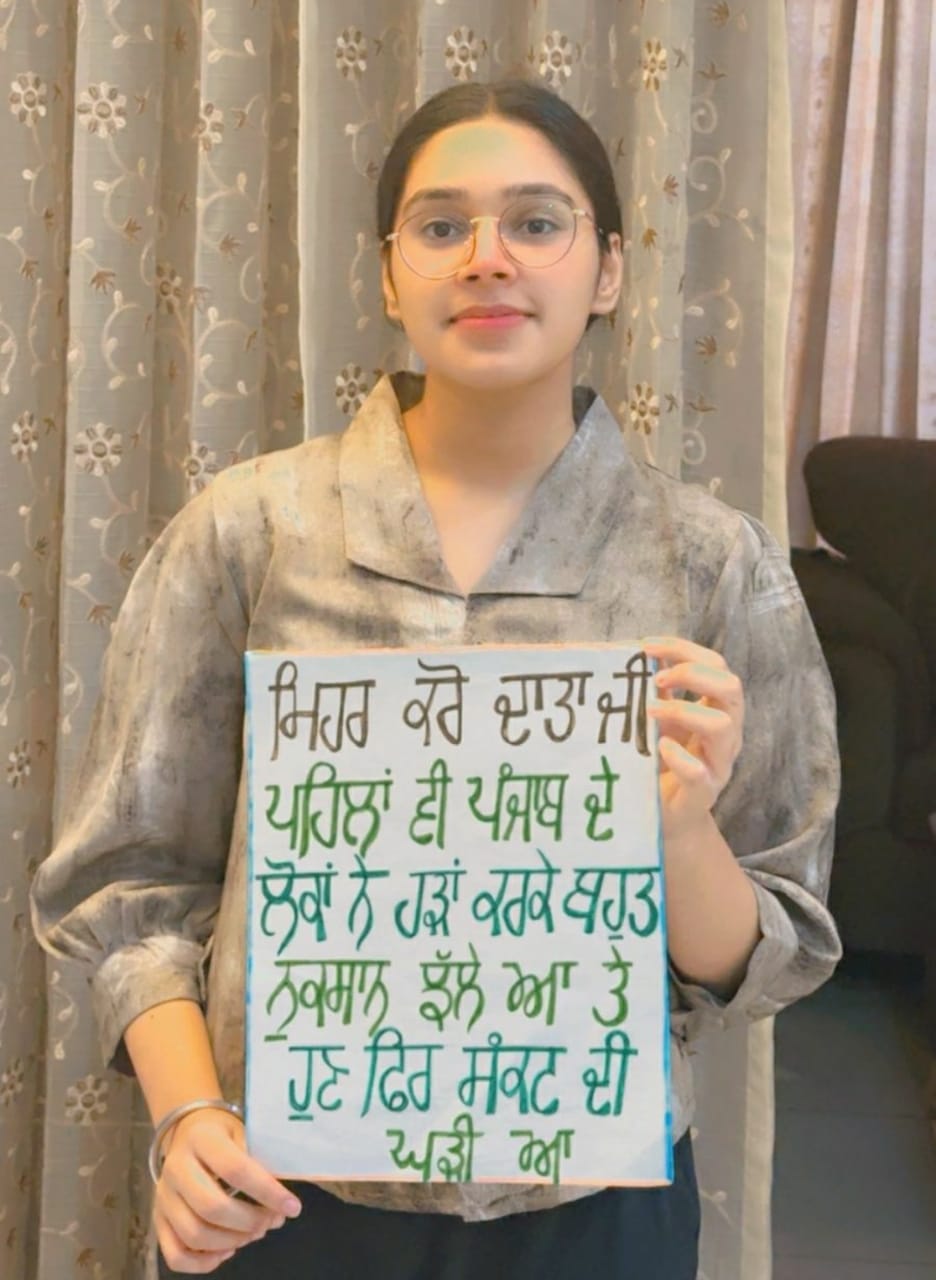 ਮਿਹਰ ਕਰੋ ਦਾਤਾ ਜੀ
ਪਹਿਲਾਂ ਵੀ ਪੰਜਾਬ ਦੇ
ਲੋਕਾਂ ਨੇ ਹੜਾਂ ਕਰਕੇ ਬਹੁਤ
ਨੁਕਸਾਨ ਝੱਲੇ ਆ ਤੇ
ਹੁਣ ਫਿਰ ਸੰਕਟ ਦੀ
ਘੜੀ ਆ